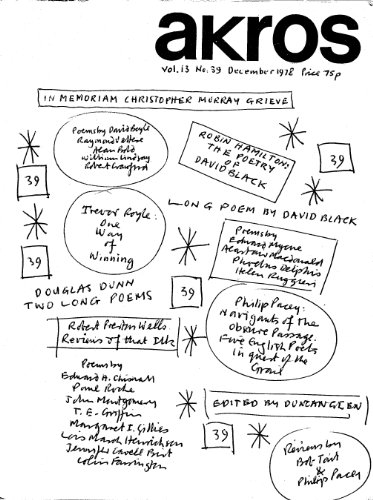 akros
Vol. 13 No. 39 December 1978 Price 75p
IN MEMORIAM CHRISTOPHER MURRAY GRIEVE
Poems by David Angle
Raymond Vettese
Alan Bold
William Lindsay
Robert Crawford
ROBIN HAMILTON:
THE POETRY
OF
DAVID BLACK
39
39
LONG POEM BY DAVID BLACK
Trevor Royle:
One
Way
of
Winning
Poems by
Edward Mycue
Alastair Macdonald
Plurabus Delphis
Helen Ruggieri
39
DOUGLAS DUNN
TWO LONG POEMS
39
Philip Pacey:
Navigants of the
Obscure Passage.
Five English Poets
in quest of the
Grail
Robert Preston Wells
Reviews of that Ilk
Poems by
Edward A. Chisnall
Paul Roche
John Montgomery
T. E. Griffin
Margaret I. Gillies
Lois Marsh Henrichsen
Jennifer Cavell Bent
Colin Farrington
EDITED BY DUNCAN GLEN
39
Reviews by
Bob Tait
&
Philip Pacey